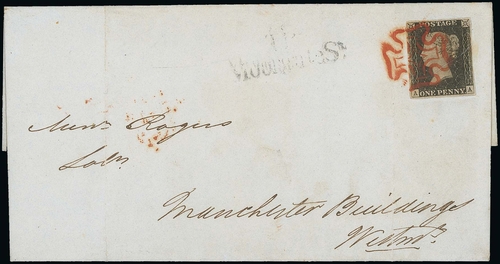 POSTAGE
A ONE PENNY A
Messrs Rogers
Solrs
Manchester Buildings
Westmr.